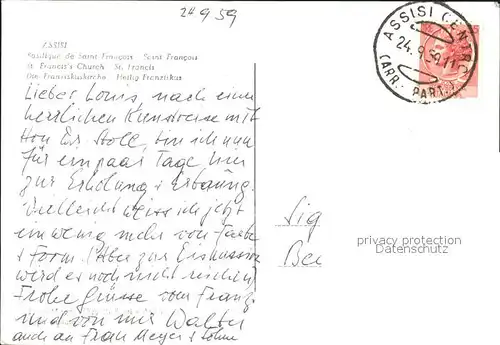 24 9 59
ASSISI
Basilique de Saint François Saint François
St. Francis's Church St. Francis
Die Franziskuskirche Heilig Franziskus
ASSISI CENTRO
24.9.59.11
(ARR. PART.)
Lieber Louis, nach einer
herrlichen Kunstreise mit
Stoll, bin ich nun
für ein paar Tage hier
zur Erholung & Erbauung.
Vielleicht weiss ich jetzt
ein wenig mehr von Farbe
& Form. (Aber zur Diskussion
wird es noch nicht reichen)
Frohe Grüsse vom Franz
und von mir Walter
auch an Frau Meyer & Söhne
Sig
Bee
privacy protection
Datenschutz